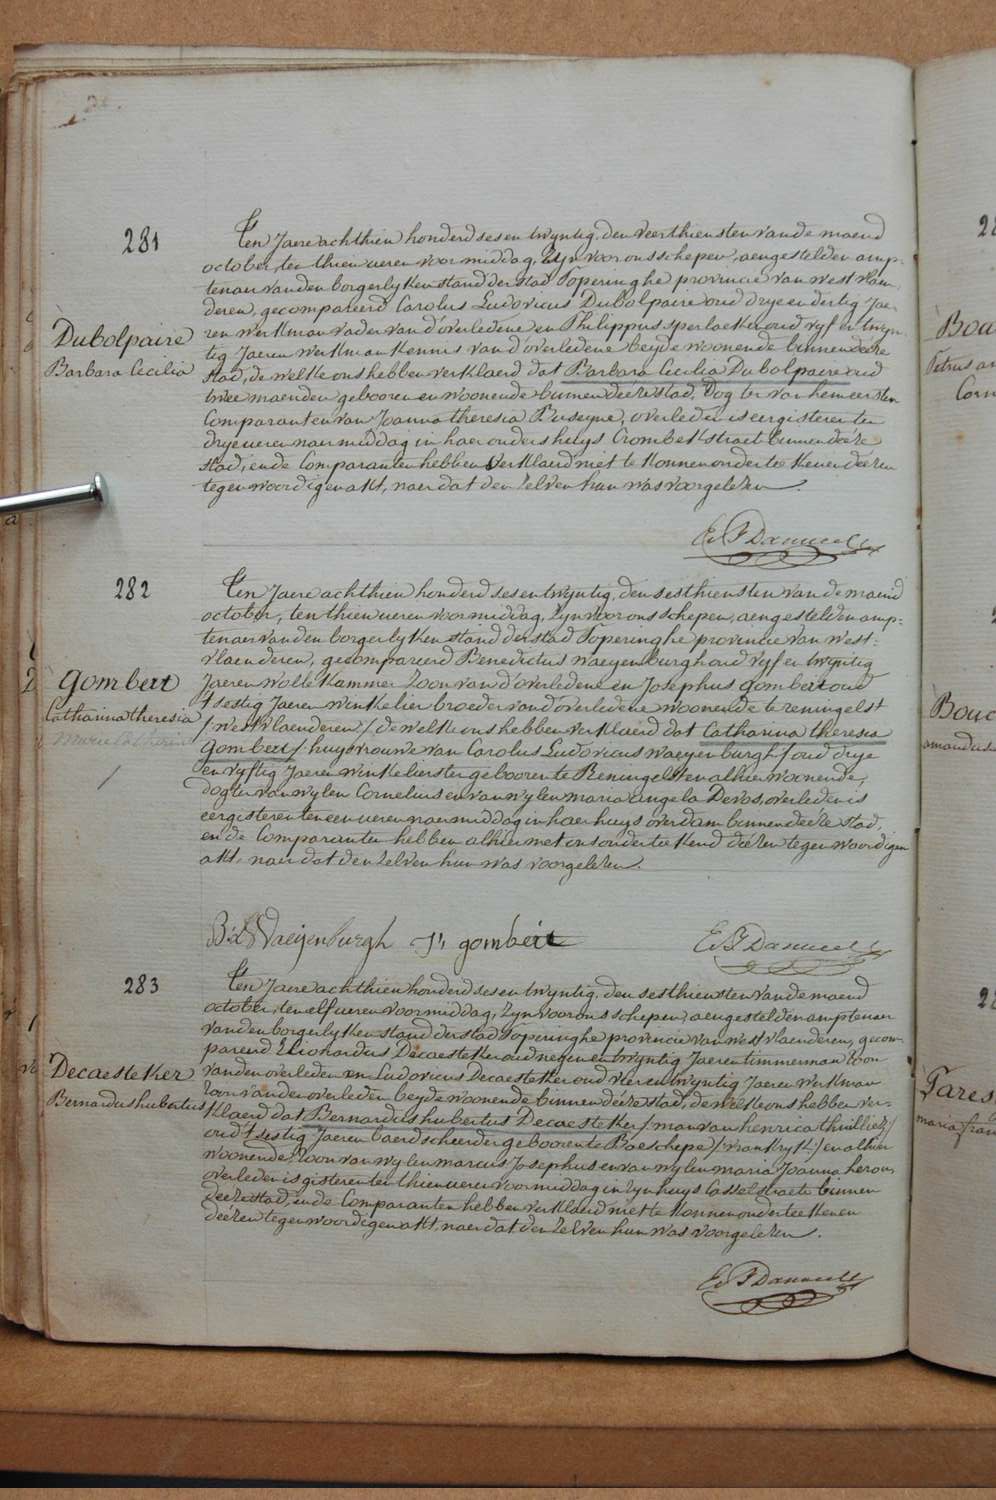 281
Ten Jaere achthien honderd ses en twyntig, den veerthiensten van de maend
october, ten thien ueren voormiddag, Zyn voor ons schepen, aengestelden amp-
tenaer van den borgerlyken stand der stad Poperinghe provincie van west vlaen-
deren, gecompareerd Carolus Ludovicus Dubolpaire oud drye en dertig Jae-
Dubolpaire
Barbara Cecilia
ren werkman vader van d'overledene en Philippus sperlaeken oud vyf en twyn-
tig Jaeren werkman kennis van d'overledene beyde woonende binnen deeze
stad, de welke ons hebben verklaerd dat Barbara Cecilia Dubolpaire oud
twee maenden geboren en woonende binnen deeze stad, Dogter van hem eersten
Comparant en van Joanna theresia overleden is eergisteren ten
drye ueren naermiddag in haer ouders huys Crombekstraet binnen deeze
stad, ende Comparanten hebben verklaerd niet te konnen onderteekenen deezen
tegenwoordigen akt, naer dat den zelven hun was voorgelezen.
282
Ten Jaere achthien honderd ses en twyntig, den sesthiensten van de maend
october, ten thien ueren voormiddag, Zyn voor ons schepen, aengestelden amp-
tenaer van den borgerlyken stand der stad Poperinghe provincie van west-
vlaenderen, gecompareerd Benedictus Waeyenburgh oud vyf en twyntig
Gombert
Catharina theresia
Jaeren wollekammer Zoon van d'overledene en Josephus gombert oud
sestig Jaeren winkelier broeder van d'overledene woonende te reningelst
/westvlaenderen/ de welke ons hebben verklaerd dat Catharina theresia
gombert / huysvrouwe van Carolus Ludovicus waeyenburgh / oud drye
en vyftig Jaeren winkelierster geboren te Reningelst en alhier woonende,
dogter van wylen Cornelius en van wylen maria angela Devos, overleden is
eergisteren ten een ueren naermiddag in haer huys overdam binnen deeze stad,
ende Comparanten hebben alhier met ons onderteekend deezen tegenwoordigen
akt, naer dat den zelven hun was voorgelezen.
Bd Waeyenburgh Js gombert
283
Ten Jaere achthien honderd ses en twyntig, den sesthiensten van de maend
october, ten elf ueren voormiddag, Zyn voor ons schepen, aengestelden amptenaer
van den borgerlyken stand der stad Poperinghe provincie van westvlaenderen, gecom-
pareerd Decaesteker oud negen en twyntig Jaeren timmerman Zoon
Decaesteker
Bernardus hubertus
van den overleden en Ludovicus Decaesteker oud vier en twyntig Jaeren werkman
Zoon van den overleden beyde woonende binnen deeze stad, de welke ons hebben ver-
klaerd dat Bernardus hubertus Decaesteker / man van henrica thuilliez /
oud sestig Jaeren baerdscheerder geboren te Boeschepe / vrankryk / en alhier
woonende Zoon van wylen marcus Josephus en van wylen maria Joanna heron,
overleden is gisteren ten thien ueren voormiddag in Zyn huys Casselstraete binnen
deeze stad, ende Comparanten hebben verklaerd niet te konnen onderteekenen
deezen tegenwoordigen akt, naer dat den zelven hun was voorgelezen.